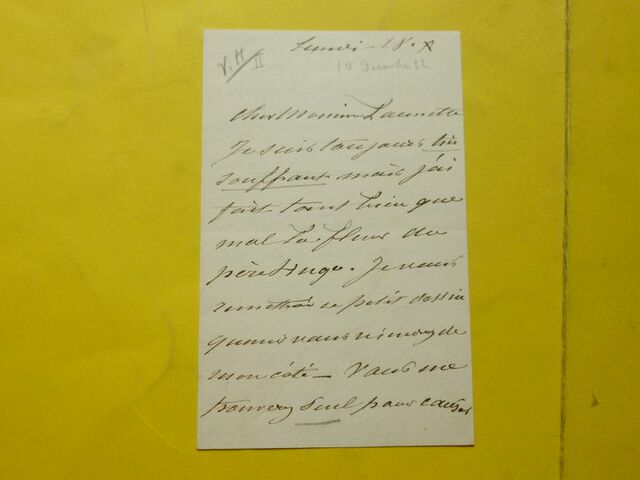 Lundi 18. X
V. H
II
18 Decembre 82
Cher Monsieur Launette
Je suis toujours très
souffrant mais j'ai
fait tant bien que
mal la fleur du
père Hugo. Je vous
remettrai ce petit dessin
quand vous viendrez de
mon côté — Vous me
trouverez seul pour causer